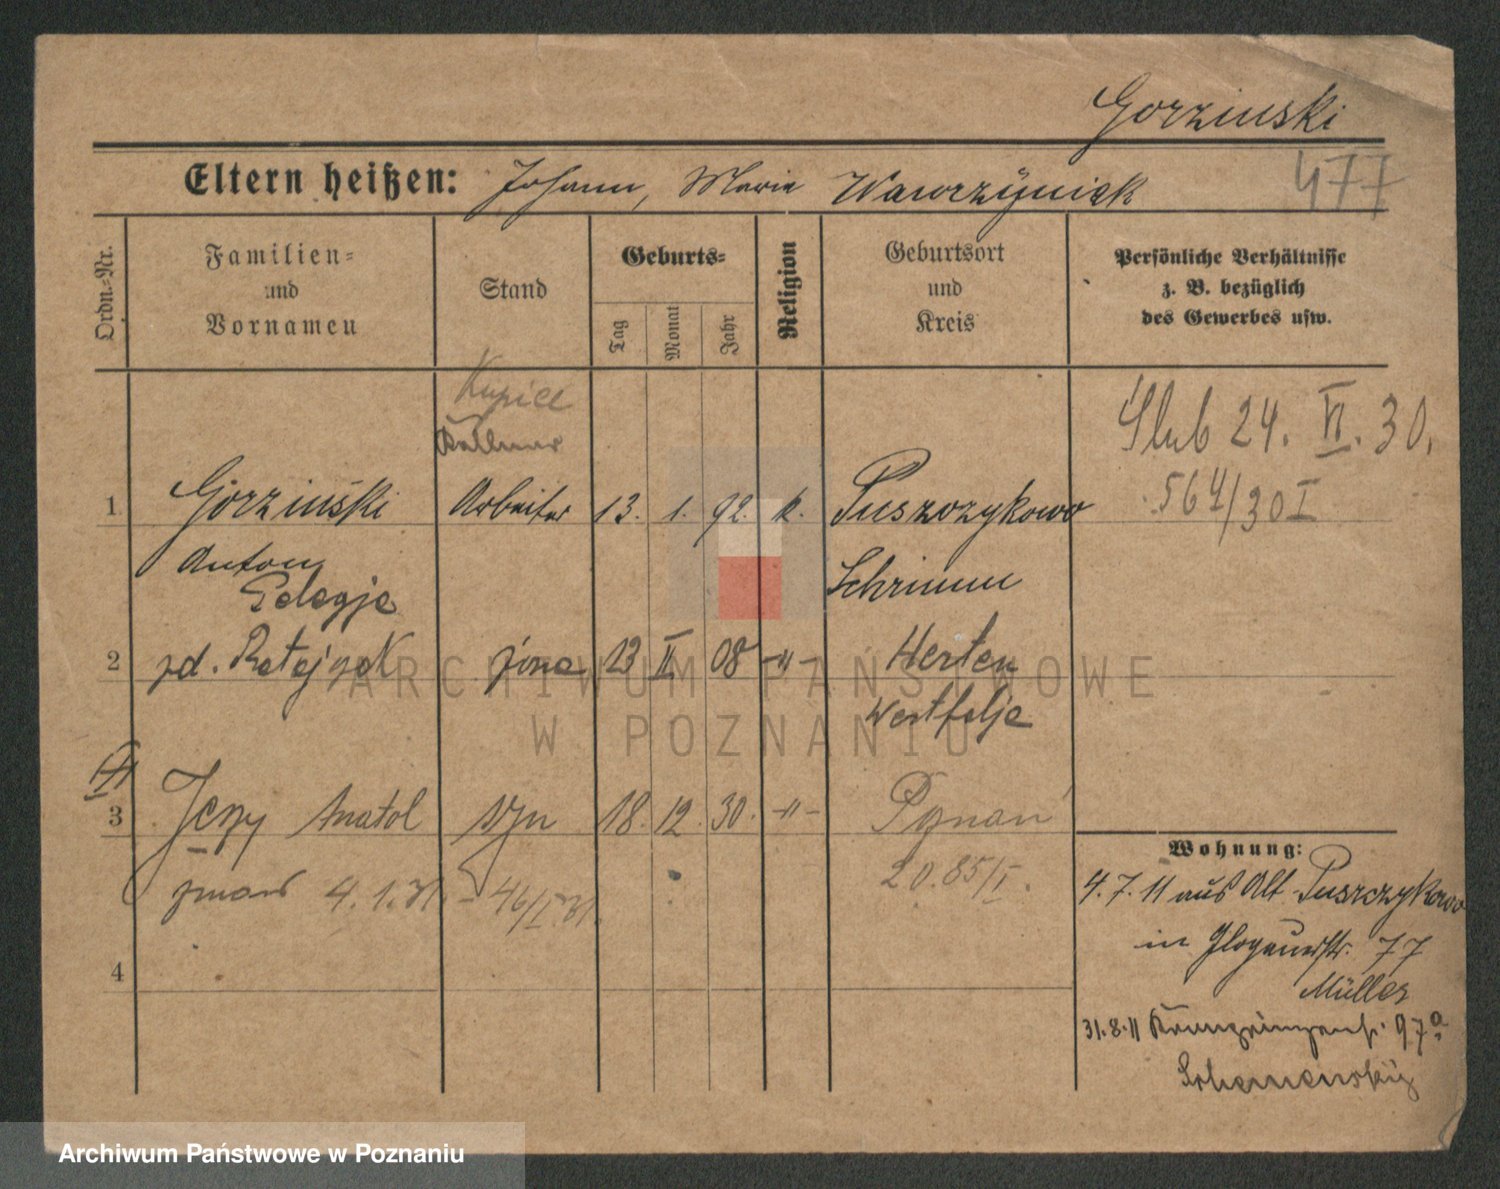 Gorzinski
477
Eltern heißen: Johann, Marie Wawrzyniak
Ordn.-Nr.
Familien-
und
Vornamen
Stand
Geburts-
Tag
Monat
Jahr
Religion
Geburtsort
und
Kreis
Persönliche Verhältnisse
z. B. bezüglich
des Gewerbes usw.
Kupiec
Kellner
Slub 24. VI. 30.
564/30 I
1 Gorzinski Arbeiter 13. 1. 92. k. Puszczykowo
Anton
Schrimm
Pelagja
2 zd. Ratajzak żona 13 II 08 -"- Herten
Westfalja
3 Jerzy Anatol syn 18. 12. 30. -"- Poznań
zmarł 4.1.31. - 46/I 31. 20.85/I.
4
Wohnung:
4.7.11 aus Alt Puszczykowo
in Glogauerstr. 77
Müller
31.8.11 Kronprinzenstr. 97a
ARCHIWUM PAŃSTWOWE
W POZNANIU
Archiwum Państwowe w Poznaniu